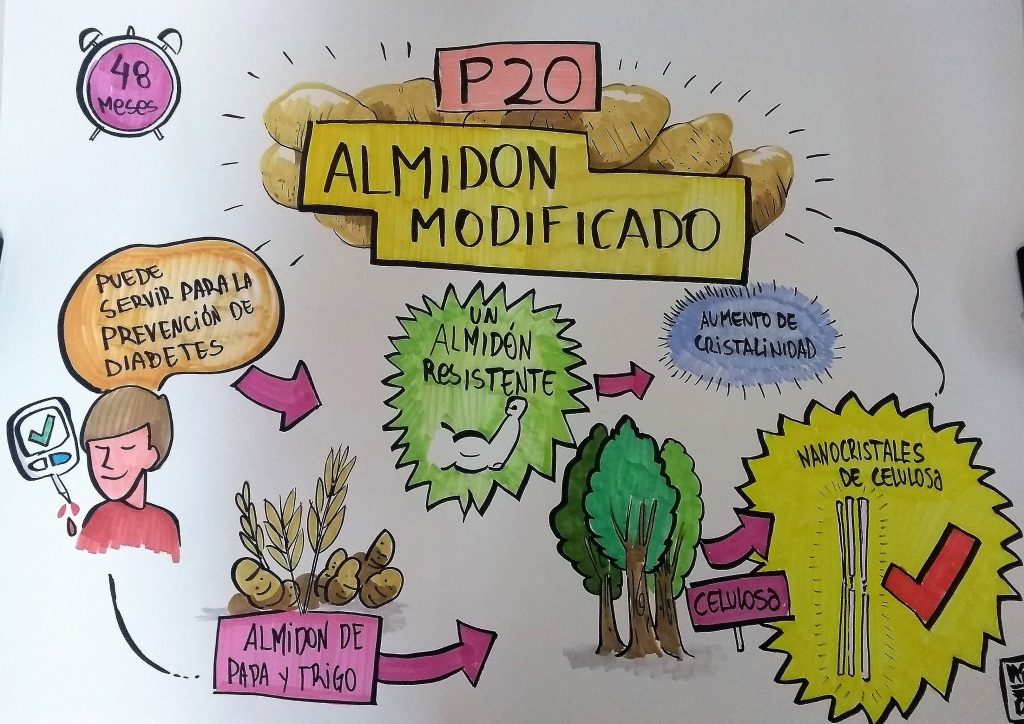 48
MESES
P20
ALMIDON
MODIFICADO
PUEDE
SERVIR PARA LA
PREVENCIÓN DE
DIABETES
UN
ALMIDÓN
RESISTENTE
AUMENTO DE
CRISTALINIDAD
NANOCRISTALES
DE CELULOSA
CELULOSA
ALMIDON DE
PAPA Y TRIGO